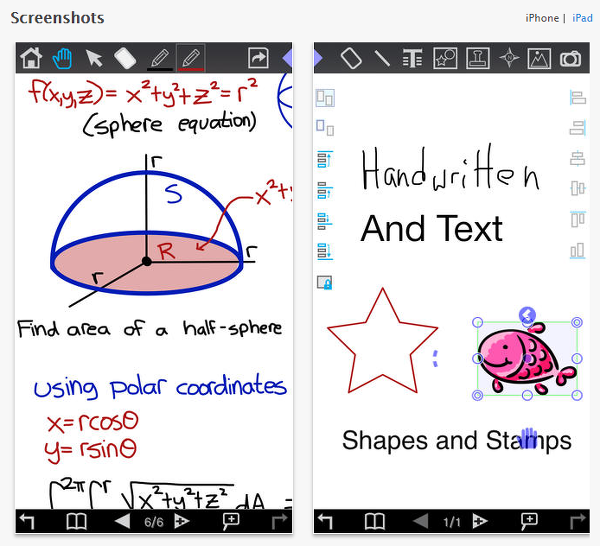 Screenshots
iPhone | iPad
f(x,y,z) = x²+y²+z² = r²
(sphere equation)
r
S
R
r
r
Find area of a half-sphere
using polar coordinates
x=rcosθ
y=rsinθ
∫²π∫r √x²+y²+z² dA =
6/6
T
Handwritten
And Text
Shapes and Stamps
1/1